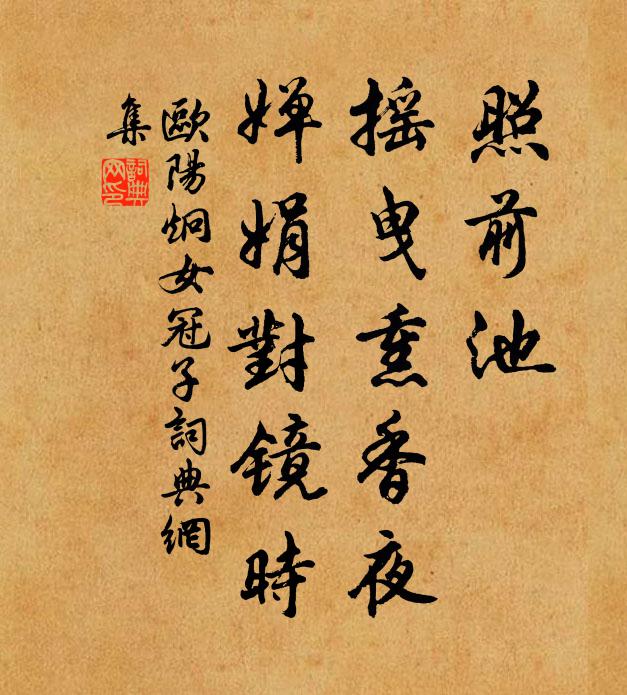 照前池
摇曳熏香夜
婵娟對鏡時
歐陽炯女冠子詞典網
集
詞典
网印